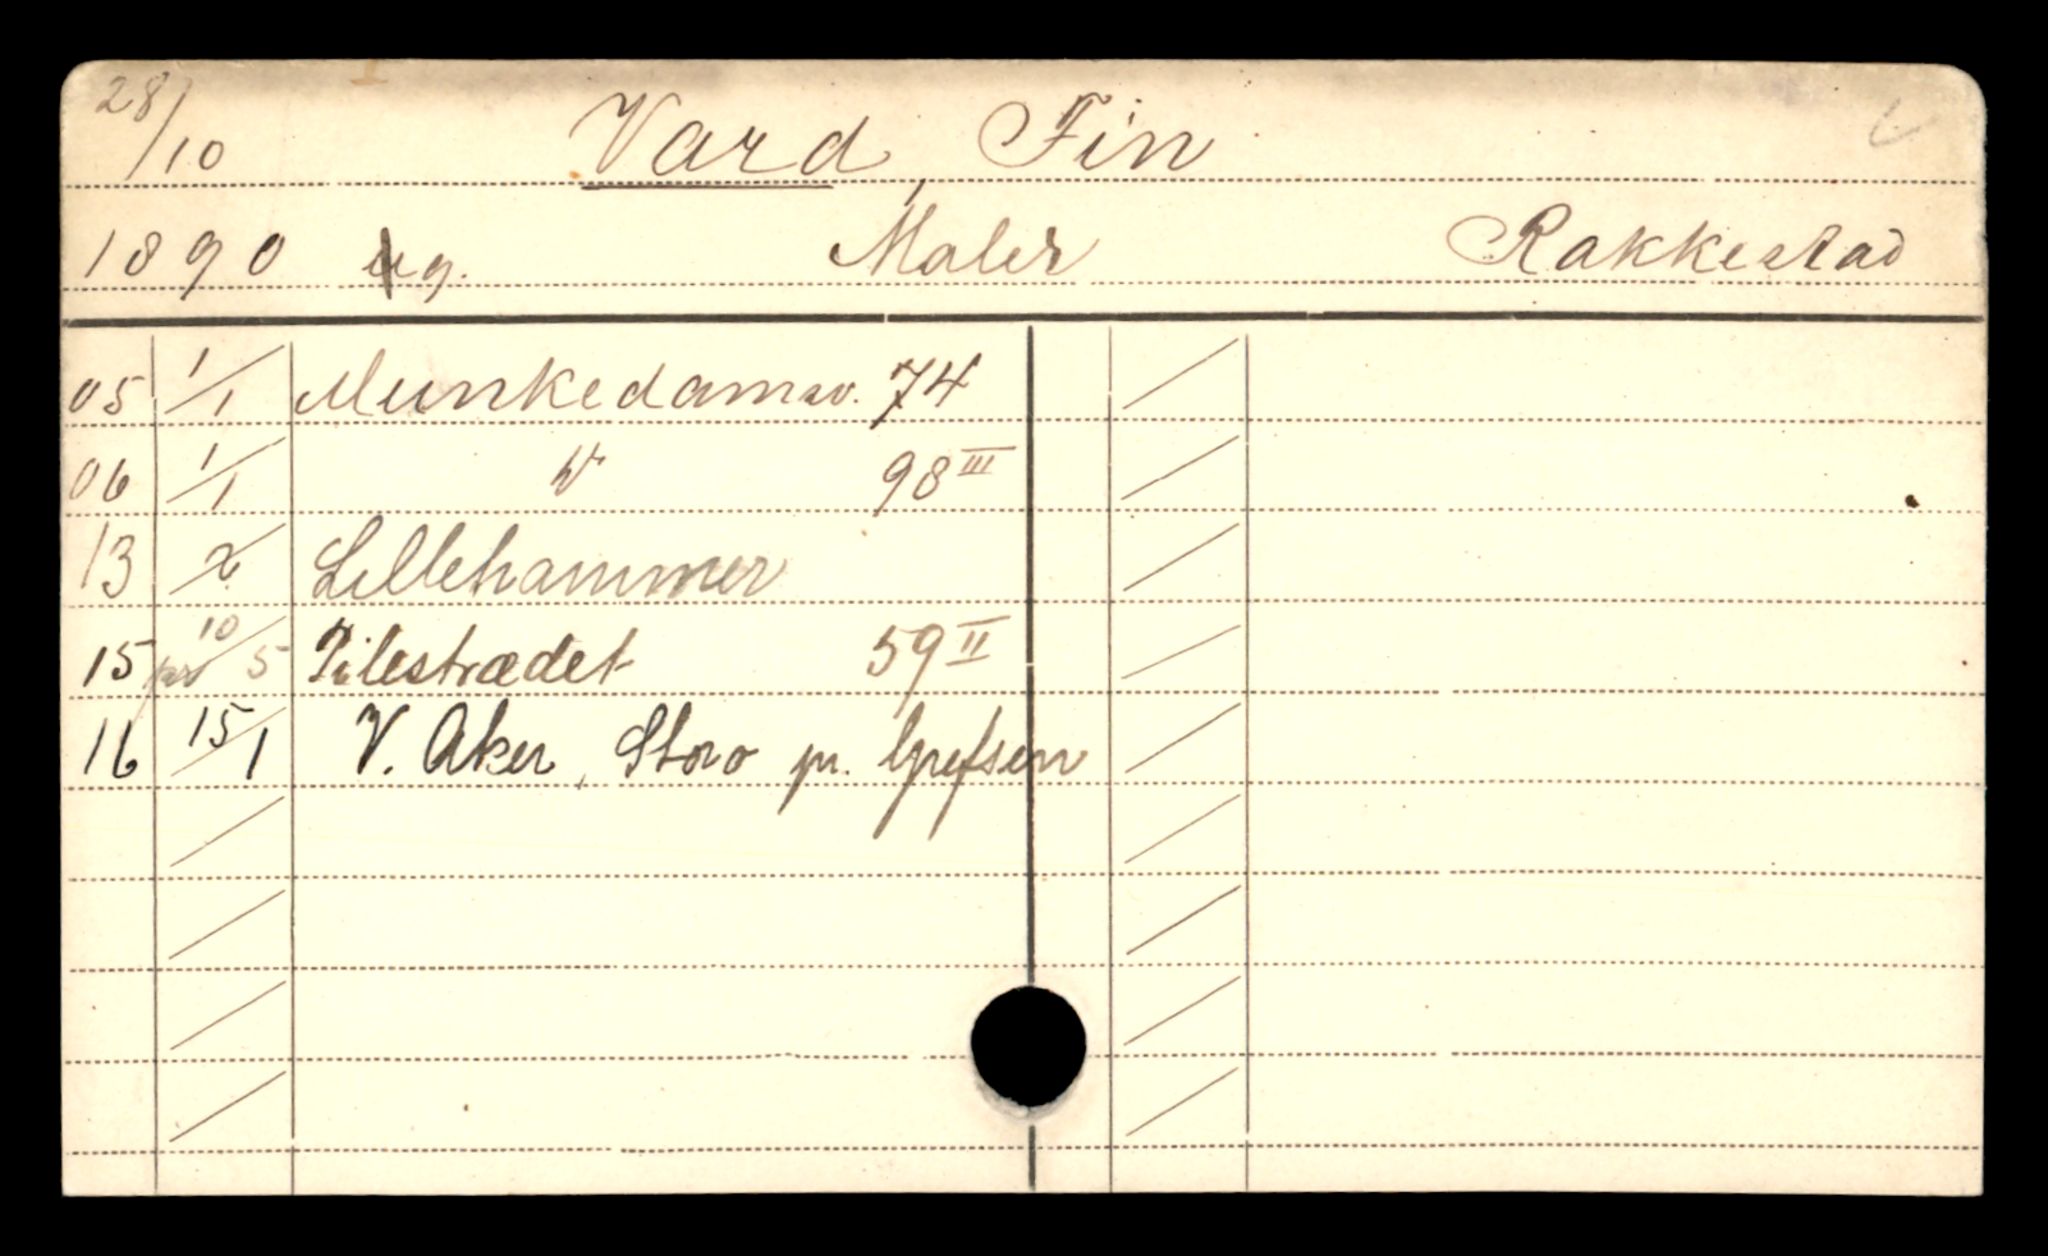 28/10 Vard, Fin
1890 ug. Maler Rakkestad
05 1/1 Munkedamsv. 74
06 1/1 " 98 III
13 Lillehammer
15 10/5 Pilestrædet 59 II
16 15/1 V. Aker, Storo pr. Grefsen